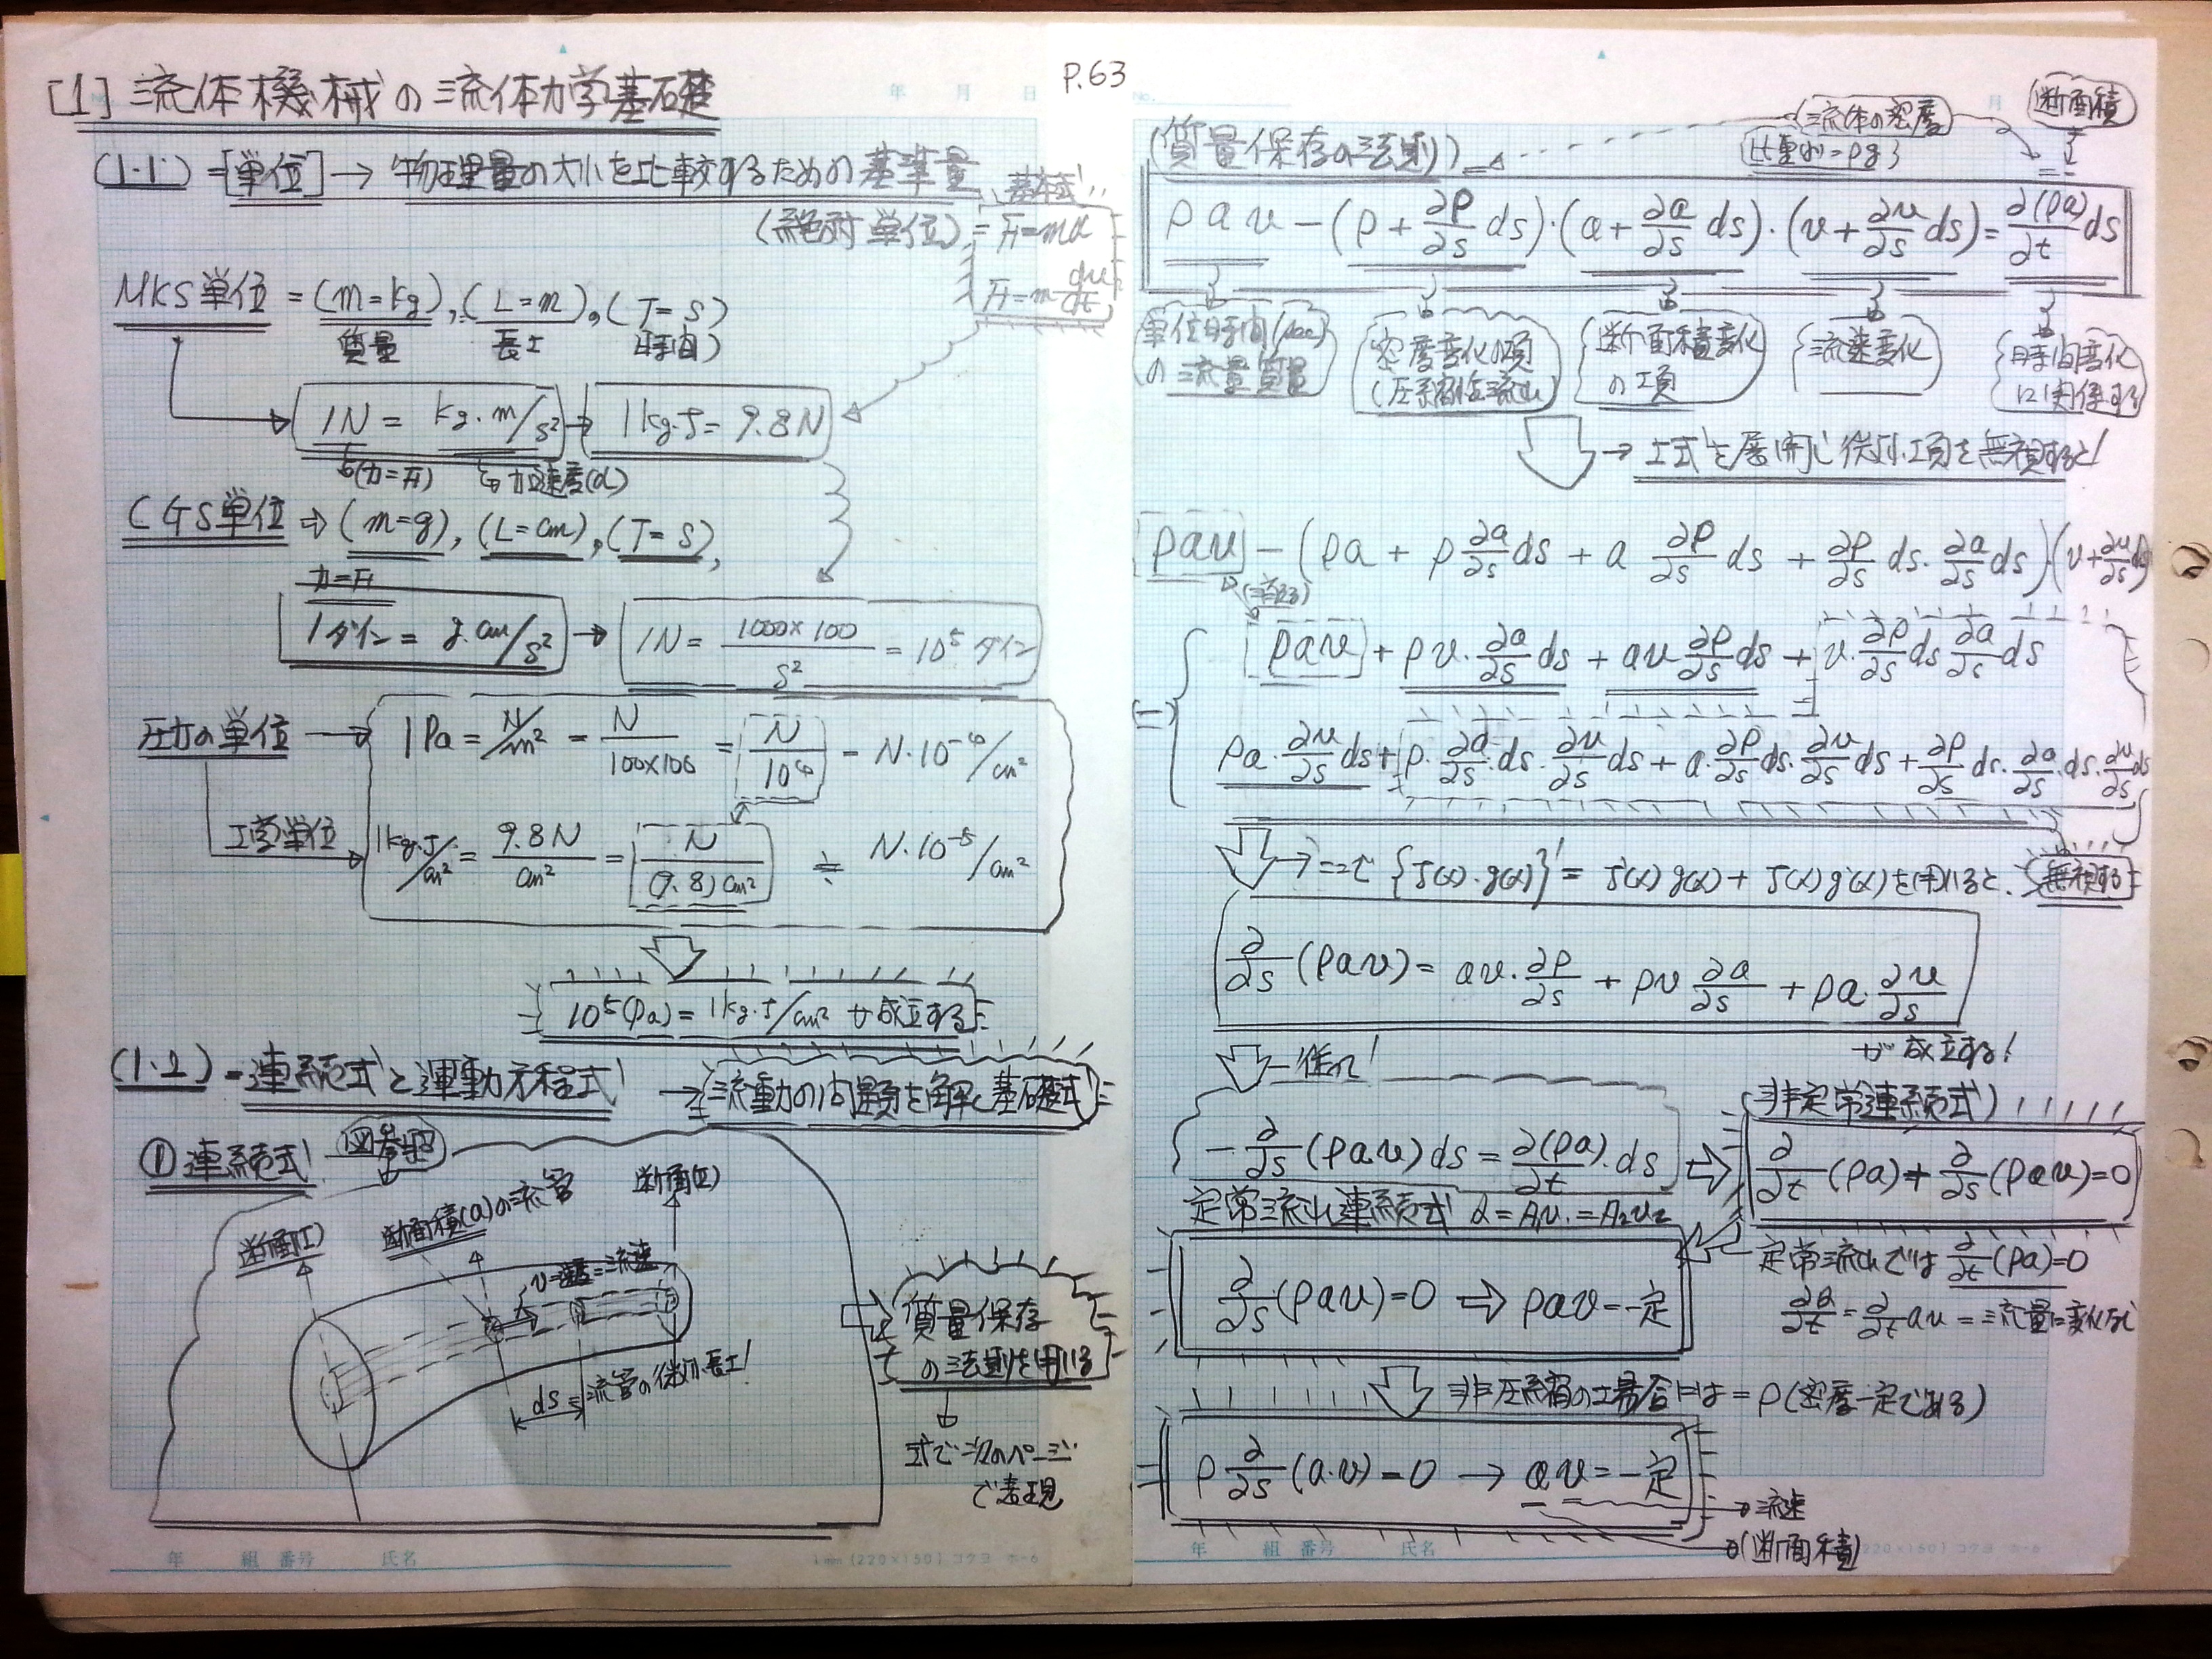 P.63
[1] 流体機械の流体力学基礎
(1.1) = [単位] → 物理量の大小を比較するための基準量
(絶対単位) =
基本式
F=mα
F=m dv/dt
MKS単位 = (m=kg), (L=m), (T=S)
質量 長さ 時間
1N = kg·m/s² → 1kg·f = 9.8N
(力=F) 加速度(α)
CGS単位 ⇒ (m=g), (L=cm), (T=S),
力=F
1ダイン = g·cm/s² → 1N = 1000×100/s² = 10⁵ダイン
圧力の単位 → 1Pa = N/m² = N/100×100 = N/10⁴ = N·10⁻⁴/cm²
工学単位 1kg·f/cm² = 9.8N/cm² = N/(9.8)cm² ≒ N·10⁻⁵/cm²
10⁵(Pa) = 1kg·f/cm² が成立する
(1.2) = 連続式と運動方程式 → 流動の問題を解く基礎式
① 連続式 図参照
断面(I) 断面積(a)の流管 断面(II)
v=速度=流速
ds = 流管の微小長さ
質量保存
の法則を用いる
式で次のページ
で表現
(質量保存の法則) =
流体の密度
比重量=ρg
断面積
ρav − (ρ + ∂ρ/∂s ds)·(a + ∂a/∂s ds)·(v + ∂v/∂s ds) = ∂(ρa)/∂t ds
単位時間(sec)
の流量質量
密度変化の項
(圧縮性流れ)
断面積変化
の項
流速変化
時間変化
に関係する
→ 上式を展開し微小項を無視すると!
ρav − (ρa + ρ ∂a/∂s ds + a ∂ρ/∂s ds + ∂ρ/∂s ds·∂a/∂s ds)(v + ∂v/∂s ds)
(消える)
ρav + ρv·∂a/∂s ds + av ∂ρ/∂s ds + v·∂ρ/∂s ds ∂a/∂s ds
=
ρa·∂v/∂s ds + ρ·∂a/∂s·ds·∂v/∂s ds + a·∂ρ/∂s ds·∂v/∂s ds + ∂ρ/∂s ds·∂a/∂s·ds·∂v/∂s ds
→ ここで {f(x)·g(x)}' = f'(x) g(x) + f(x) g'(x) を用いると、 無視する
∂/∂s (ρav) = av·∂ρ/∂s + ρv ∂a/∂s + ρa·∂v/∂s
が成立する!
従って!
−∂/∂s (ρav) ds = ∂(ρa)/∂t·ds ⇒
(非定常連続式)
∂/∂t (ρa) + ∂/∂s (ρav) = 0
定常流れ連続式 Q = A₁v₁ = A₂v₂
∂/∂s (ρav) = 0 ⇒ ρav = 一定
定常流れでは ∂/∂t (ρa) = 0
∂Q/∂t = ∂/∂t av = 流量に変化なし
非圧縮の場合には = ρ(密度一定である)
ρ ∂/∂s (a·v) = 0 → av = 一定
流速
(断面積)
年 組 番号 氏名
1mm (220×150) コクヨ ホ-6
年 組 番号 氏名